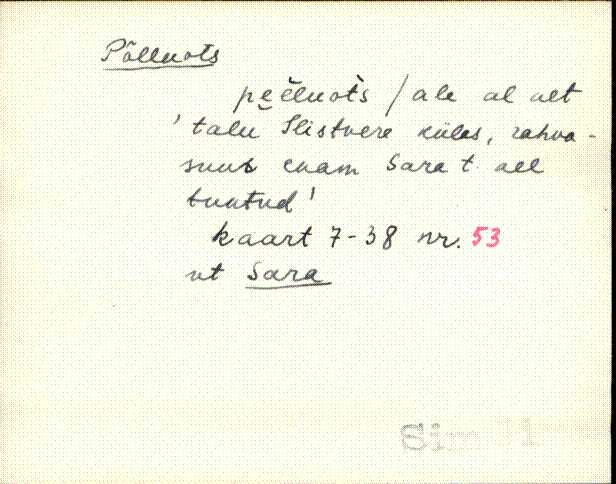 Põlluots
pe̮ĕ̮lluot̀s / ale al alt
'talu Ilistvere külas, rahva-
suus enam Sara t. all
tuntud'
kaart 7-38 nr. 53
vt Sara
Sim